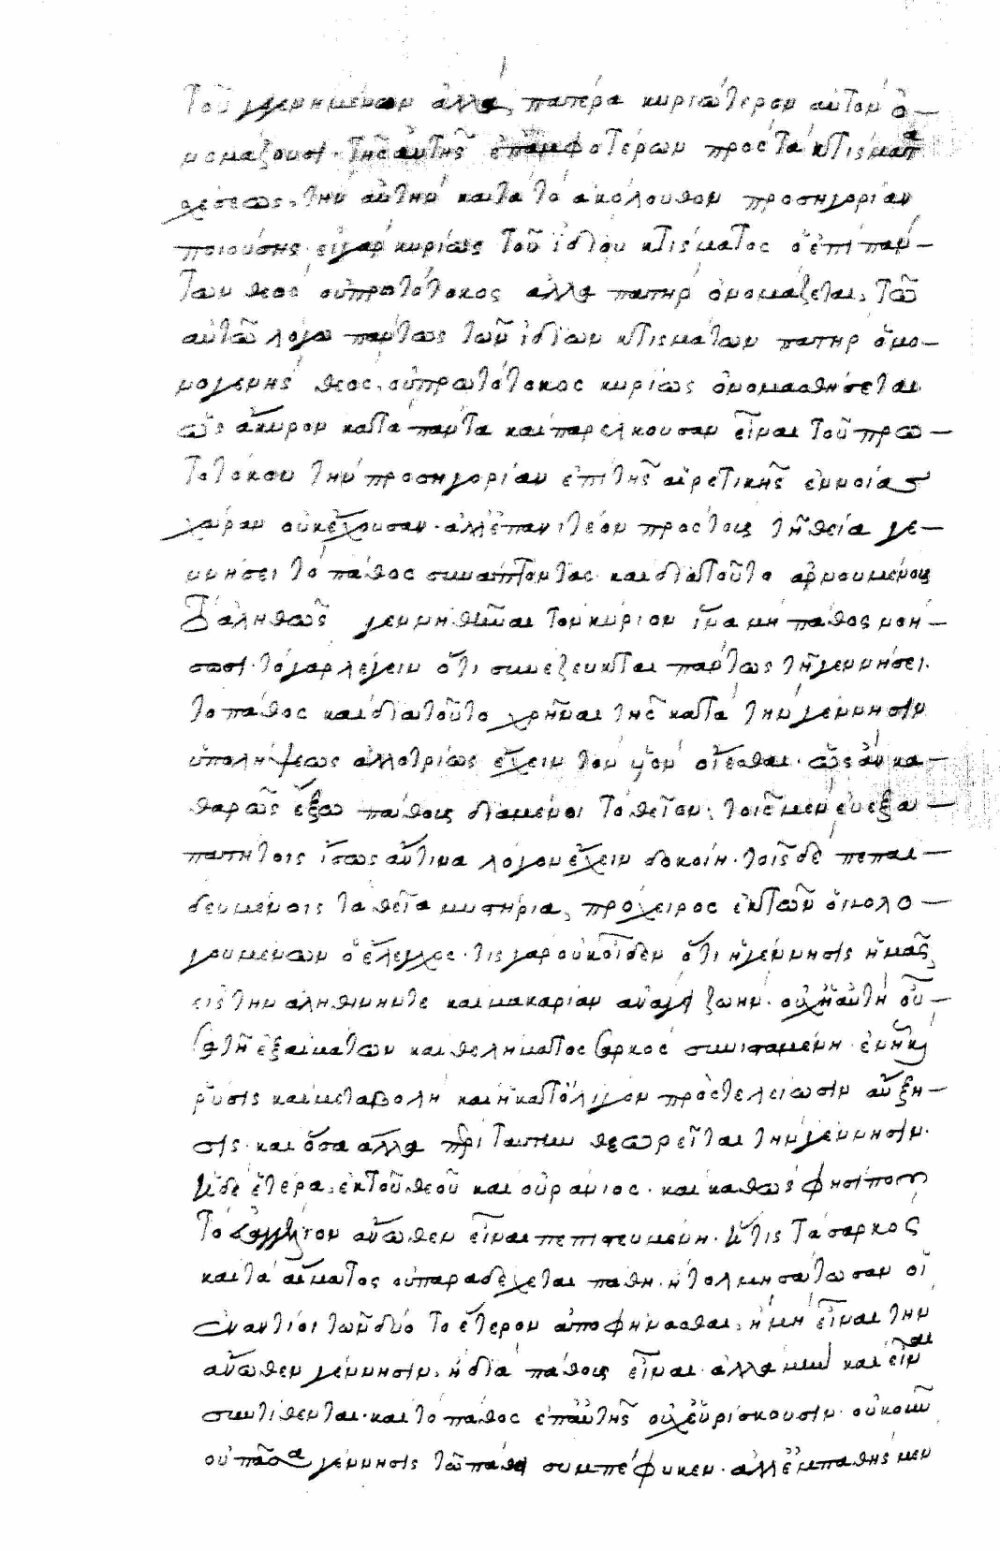 τοῦ γεννημένων ἀλλὰ, πατέρα κυριώτερον αὐτὸν ὀ-
νομάζουσι· τῆς αὐτῆς ἐπαμφοτέρων πρὸς τὰ κτίσματα
σχέσεως, τὴν αὐτὴν κατὰ τὸ ἀκόλουθον προσηγορίαν
ποιούσης· εἰ γὰρ κυρίως τοῦ ἰδίου κτίσματος ὁ ἐπὶ πάν-
των θεὸς οὐ πρωτότοκος ἀλλὰ πατὴρ ὀνομάζεται, τῶ
αὐτῶ λόγω πάντως τῶν ἰδίων κτισμάτων πατὴρ ὁ μο-
νογενὴς θεος, οὐ πρωτότοκος κυρίως ὀνομασθήσεται
ὡς ἄκυρον κατὰ πάντα καὶ παρέλκουσαν εἶναι τοῦ πρω-
τοτόκου τὴν προσηγορίαν ἐπὶ τῆς αἱρετικῆς ἐννοίας
χώραν οὐκ ἔχουσαν· ἀλλ ἐπανιτέον πρὸς τοὺς τῆ θεία γε-
ννήσει τὸ πάθος συνάπτοντας καὶ διατοῦτο ἀρνουμένους
τὸ ἀληθῶς γεννηθῆναι τὸν κύριον ἵνα μὴ πάθος νοή-
σωσι· τὸ γὰρ λέγειν ὅτι συνέζευκται πάντως τῆ γεννήσει
τὸ πάθος καὶ διατοῦτο χρῆναι τῆς κατὰ τὴν γέννησιν
ὑπολήψεως ἀλλοτρίως ἔχειν τὸν υἱὸν οἴεσθαι· ὡς ἂν κα-
θαρῶς ἔξω πάθους διαμένοι τὸ θεῖον· τοῖς μὲν εὐεξα-
πατήτοις ἴσως ἄν τινα λόγον ἔχειν δοκοίη· τοῖς δὲ πεπαι-
δευμένοις τὰ θεῖα μυστήρια, πρόχειρος ἐκ τῶν ὁμολο-
γουμένων ὁ ἔλεγχος· τίς γὰρ οὐκ οἶδεν ὅτι ἡ γέννησις ἡμᾶς
εἰς τὴν ἀληθινήν τε καὶ μακαρίαν ἀνάγει ζωήν· οὐχ ἡ αὐτὴ οὖ-
σα τῆ ἐξ αἱμάτων καὶ θελήματος σαρκὸς συνισταμένη· ἐν ἧ καὶ
ῥύσις καὶ μεταβολὴ καὶ ἡ κατ ὀλίγον πρὸς τελείωσιν αὔξη-
σις· καὶ ὅσα ἄλλα περὶ ταύτην θεωρεῖται τὴν γέννησιν·
ἡ δὲ ἑτέρα, ἐκ τοῦ θεοῦ καὶ οὐράνιος· καὶ καθὼς φησί που
τὸ εὐαγγέλιον ἄνωθεν εἶναι πεπιστευμένη· ἥτις τὰ σαρκὸς
καὶ τὰ αἵματος οὐ παραδέχεται πάθη· ἢ τολμησάτωσαν οἱ
ἐναντίοι τῶν δύο τὸ ἕτερον ἀποφήνασθαι, ἢ μὴ εἶναι τὴν
ἄνωθεν γέννησιν, ἢ διὰ πάθους εἶναι· ἀλλὰ μὴν καὶ εἶναι
συντίθενται· καὶ τὸ πάθος ἐπ αὐτῆς οὐχ εὑρίσκουσιν· οὐκοῦν
οὐ πᾶσα γέννησις τῶ πάθει συμπέφυκεν· ἀλλ ἐμπαθὴς μὲν